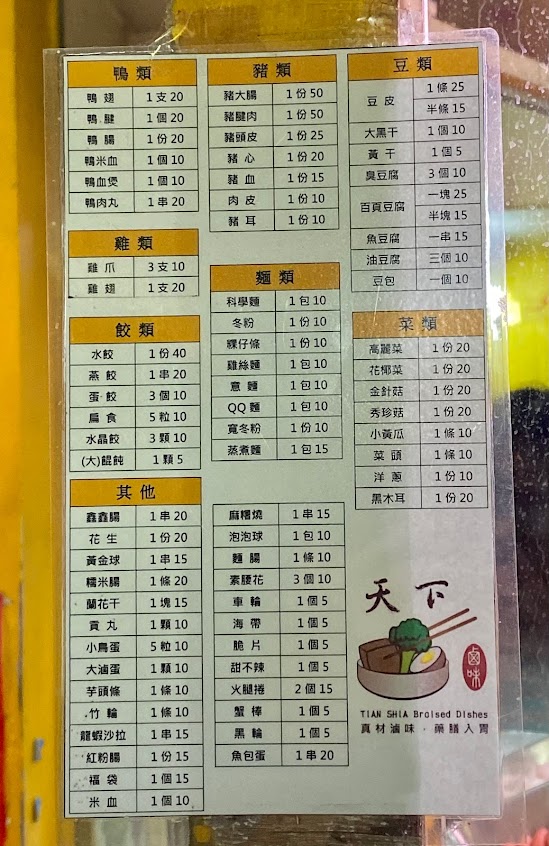 鴨類
鴨翅 1支20
鴨腱 1個20
鴨腸 1份20
鴨米血 1個10
鴨血煲 1個10
鴨肉丸 1串20
雞類
雞爪 3支10
雞翅 1支20
餃類
水餃 1份40
燕餃 1串20
蛋餃 3個10
扁食 5粒10
水晶餃 3顆10
(大)餛飩 1顆5
其他
鑫鑫腸 1串20
花生 1份20
黃金球 1串15
糯米腸 1條20
蘭花干 1塊15
貢丸 1顆10
小鳥蛋 5粒10
大滷蛋 1顆10
芋頭條 1條10
竹輪 1條10
龍蝦沙拉 1串15
紅粉腸 1份15
福袋 1個15
米血 1個10
豬類
豬大腸 1份50
豬腱肉 1份50
豬頭皮 1份25
豬心 1份20
豬血 1份15
肉皮 1份10
豬耳 1份10
麵類
科學麵 1包10
冬粉 1份10
粿仔條 1份10
雞絲麵 1包10
意麵 1包10
QQ麵 1包10
寬冬粉 1份10
蒸煮麵 1包15
麻糬燒 1串15
泡泡球 1包10
麵腸 1條10
素腰花 3個10
車輪 1個5
海帶 1個5
脆片 1個5
甜不辣 1個5
火腿捲 2個15
蟹棒 1個5
黑輪 1個5
魚包蛋 1串20
豆類
豆皮 1條25
半條15
大黑干 1個10
黃干 1個5
臭豆腐 3個10
百頁豆腐 一塊25
半塊15
魚豆腐 一串15
油豆腐 三個10
豆包 一個10
菜類
高麗菜 1份20
花椰菜 1份20
金針菇 1份20
秀珍菇 1份20
小黃瓜 1條10
菜頭 1條10
洋蔥 1份10
黑木耳 1份20
天下
滷味
TIAN SHIA Broised Dishes
真材滷味．藥膳入胃